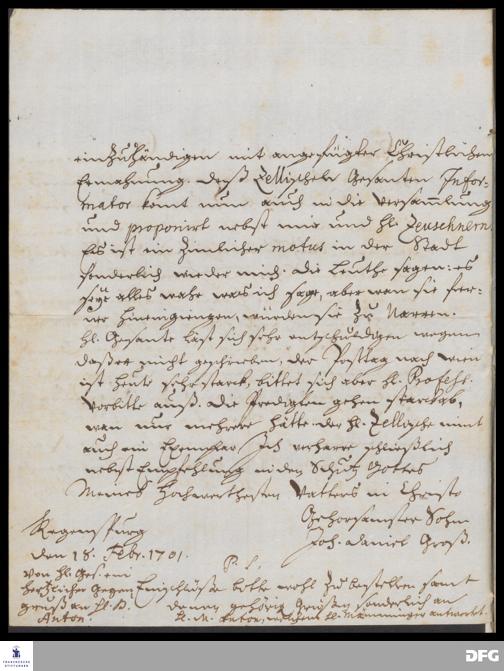 einzuhändigen mit angefügter Christlichen
Ermahnung. deß Zellischen Gesanten Infor-
mator komt nun auch in die versamlung
und proponirt nebst mir und H. Zeuschnern.
Es ist ein zimlicher motus in der Stadt
sonderlich wieder mich. die Leuthe sagen: es
seÿe alles wahr was ich sage, aber wan sie fer-
ner hineingiengen, würden sie zu Narren.
H. Gesante last sich sehr entschuldigen wegen
daß er nicht geschrieben, der Posttag nach wien
ist heute sehr starck, bittet sich aber H. Profess.
Vorbitte auß. die Predigten gehen starck ab,
wan nur mehrere hätte. der H. Zellische nimt
auch ein Exemplar Ich verharre schließlich
nebst Empfehlung in den Schutz Gottes
Meines Hochwerthesten Vatters in Christo
Gehorsamster Sohn
Joh. Daniel Groß.
Regenspurg
den 18. Febr. 1701.
P. S.
von H. Ges. ein
hertzlicher gegen
gruß an H. D.
Anton.
Einschlüße bitte wohl zu bestellen samt
denen gehörig Grüßen sonderlich an
H. M. Anton, welchem H. antwortet.
FRANCKESCHE STIFTUNGEN
DFG